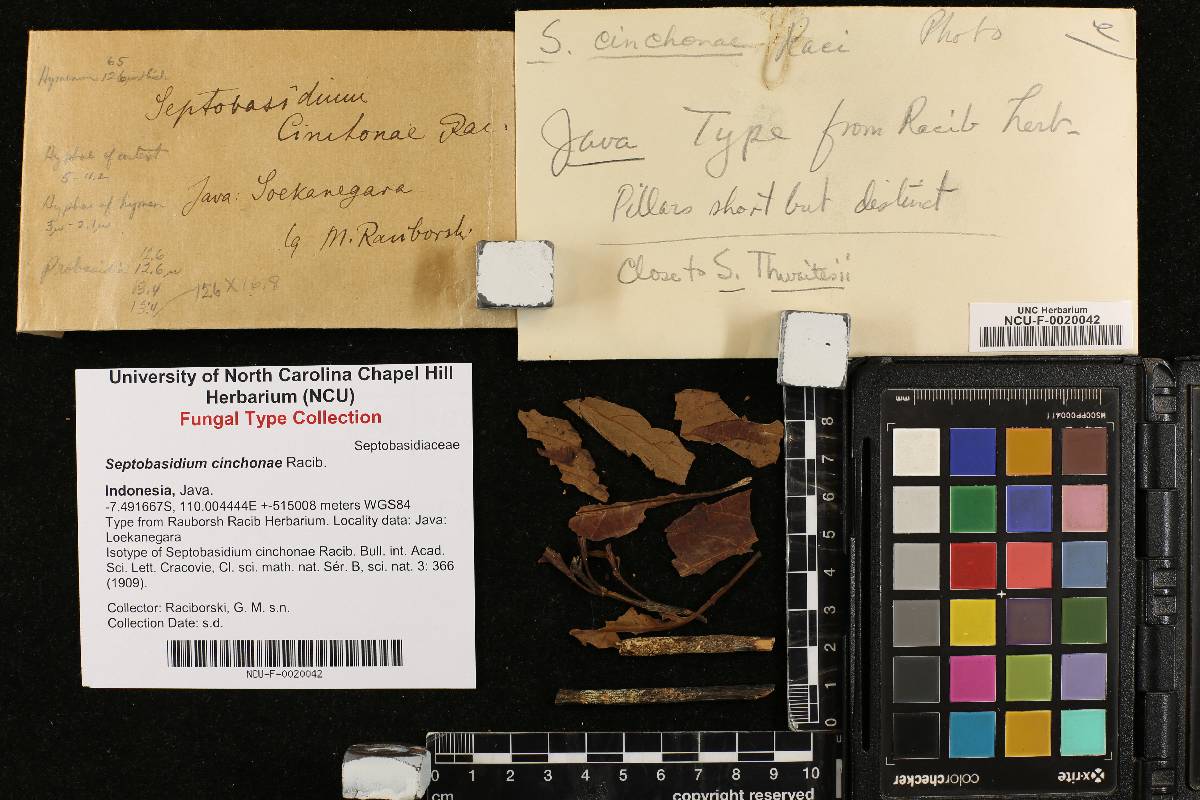 65
Hymenium 126µ thick
Septobasidium
Cinchonae Rac.
Hyphae of context
Hyphae of hymen
3µ - 2.1µ
Java: Soekanegara
lg M. Raciborski
Probasidia
12.6
12.6µ
13.4
S. cinchonae Raci
Photo
Java Type from Racib herb-
Pillars short but distinct
Close to S. Thwaitesii
UNC Herbarium
NCU-F-0020042
University of North Carolina Chapel Hill
Herbarium (NCU)
Fungal Type Collection
Septobasidiaceae
Septobasidium cinchonae Racib.
Indonesia, Java.
-7.491667S, 110.004444E +-515008 meters WGS84
Type from Rauborsh Racib Herbarium. Locality data: Java:
Loekanegara
Isotype of Septobasidium cinchonae Racib. Bull. int. Acad.
Sci. Lett. Cracovie, Cl. sci. math. nat. Sér. B, sci. nat. 3: 366
(1909).
Collector: Raciborski, G. M. s.n.
Collection Date: s.d.
NCU-F-0020042
8
7
6
5
4
3
2
1
0
0 1 2 3 4 5 6 7 8 9 10
cm
copyright reserved
mm
MSCCPP000411
colorchecker
x-rite